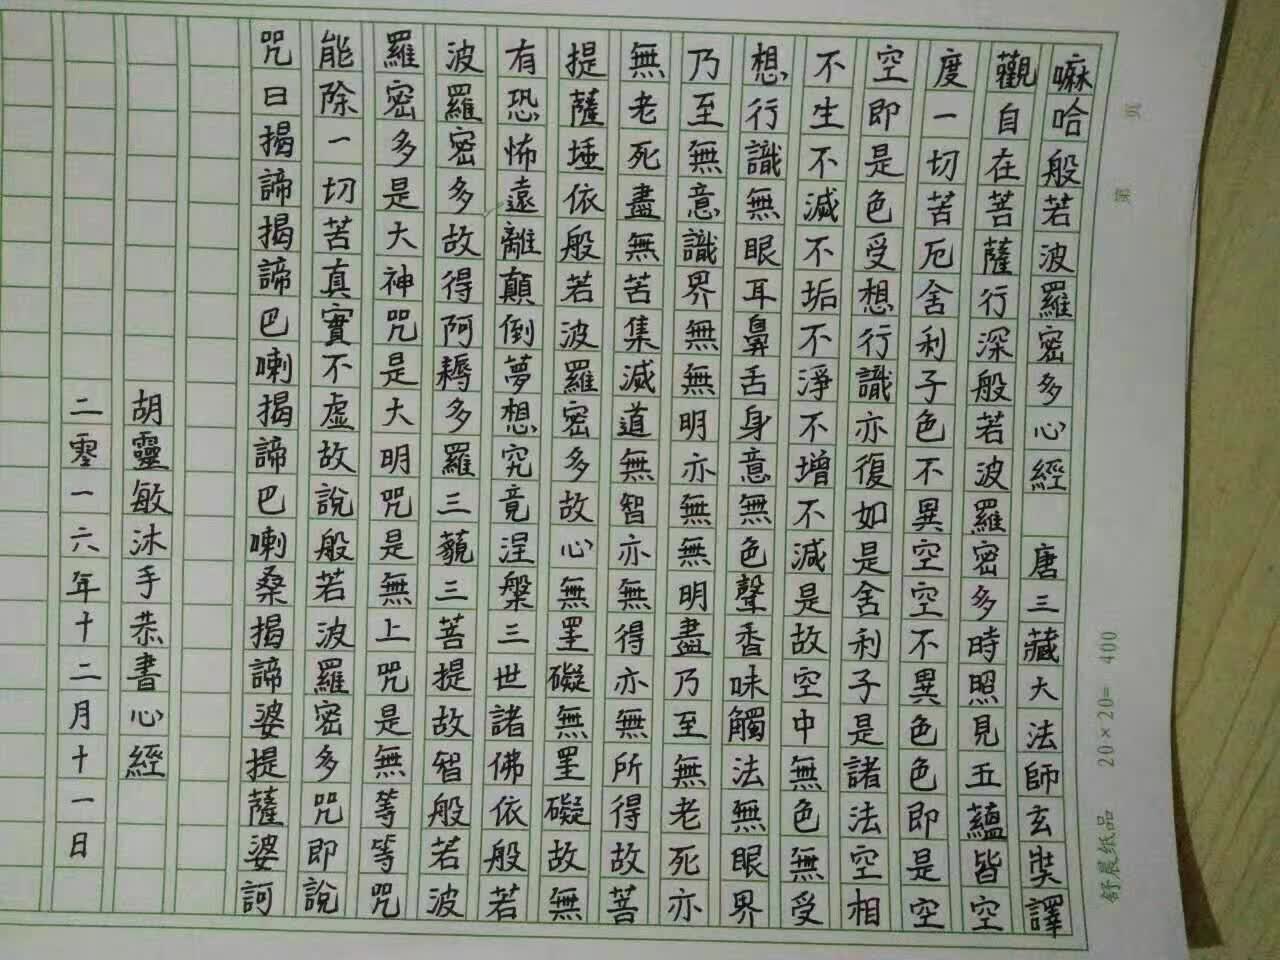 嘛哈般若波羅密多心經 唐三藏大法師玄奘譯
觀自在菩薩行深般若波羅密多時照見五蘊皆空
度一切苦厄舍利子色不異空空不異色色即是空
空即是色受想行識亦復如是舍利子是諸法空相
不生不滅不垢不淨不增不減是故空中無色無受
想行識無眼耳鼻舌身意無色聲香味觸法無眼界
乃至無意識界無無明亦無無明盡乃至無老死亦
無老死盡無苦集滅道無智亦無得亦無所得故菩
提薩埵依般若波羅密多故心無罣礙無罣礙故無
有恐怖遠離顛倒夢想究竟涅槃三世諸佛依般若
波羅密多故得阿耨多羅三藐三菩提故智般若波
羅密多是大神咒是大明咒是無上咒是無等等咒
能除一切苦真實不虛故說般若波羅密多咒即說
咒曰揭諦揭諦巴喇揭諦巴喇桑揭諦婆提薩婆訶
胡靈敏沐手恭書心經
二零一六年十二月十一日
第 页
舒晨纸品 20×20=400